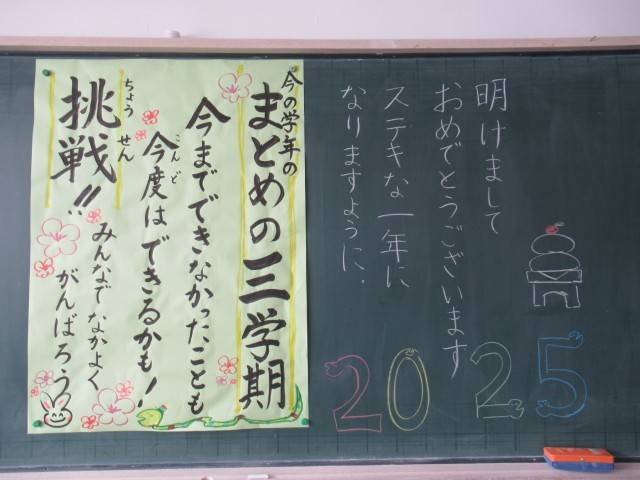 明けまして
おめでとうございます
ステキな一年に
なりますように.
2025
今の学年の
まとめの三学期
今までできなかったことも
今度はできるかも!
こんど
挑戦!!
ちょう せん
みんなでなかよく
がんばろう